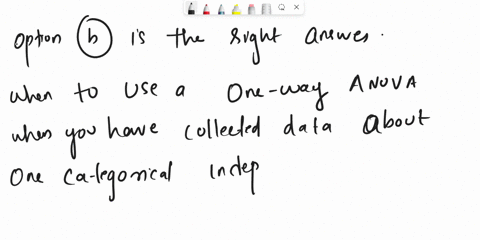 option (b) is the right answer.
when to use a One-way ANOVA
when you have collected data About
One Ca-tegorical Indep